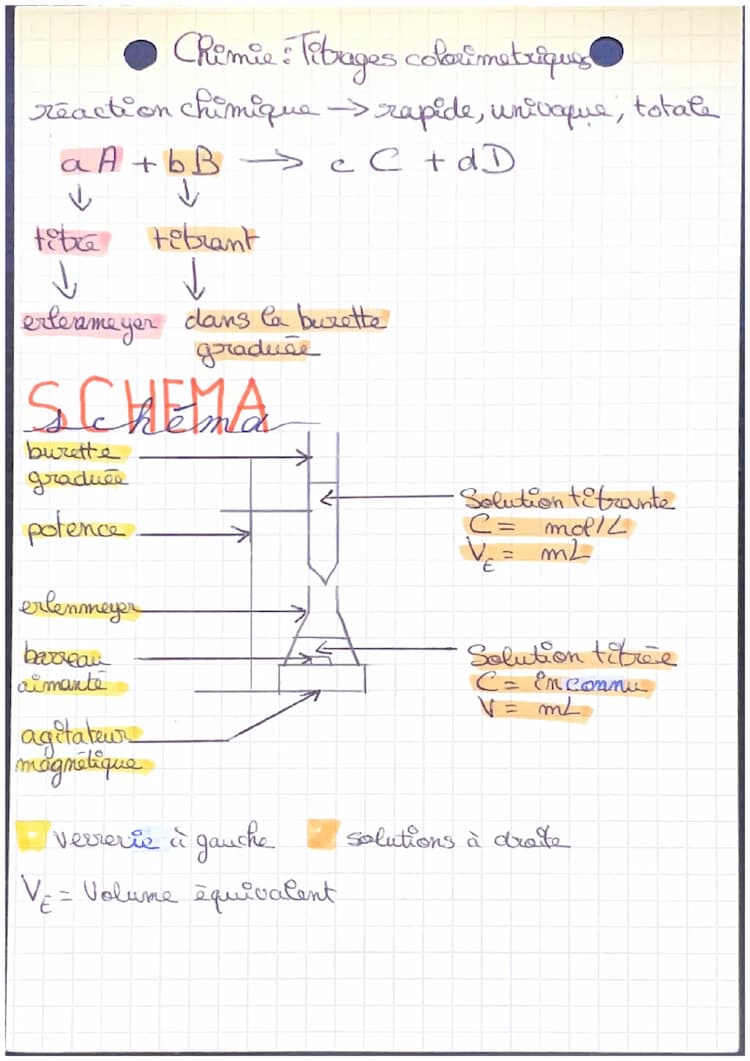 Chimie : Titrages colorimetriques
réaction chimique → rapide, univoque, totale
aA + bB → cC + dD
↓ ↓
titré titrant
↓ ↓
erlenmeyer dans la burette
graduée
SCHEMA
schéma
burette
graduée
Solution titrante
C = mol/L
V_E = mL
potence
erlenmeyer
barreau
aimanté
Solution titrée
C = inconnu
V = mL
agitateur
magnétique
verrerie à gauche solutions à droite
V_E = Volume équivalent